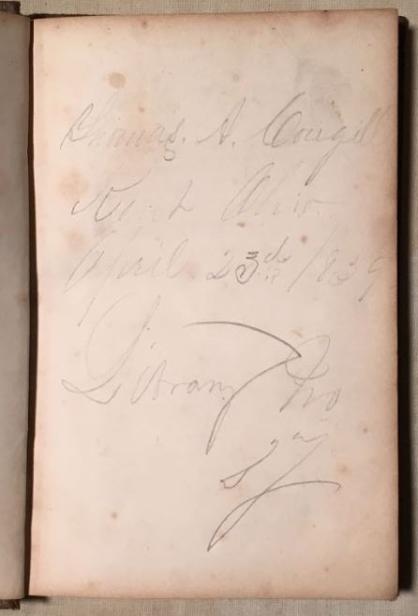 Thomas. A. Cowgill
Ohio.
April 23rd /839
Library No
27